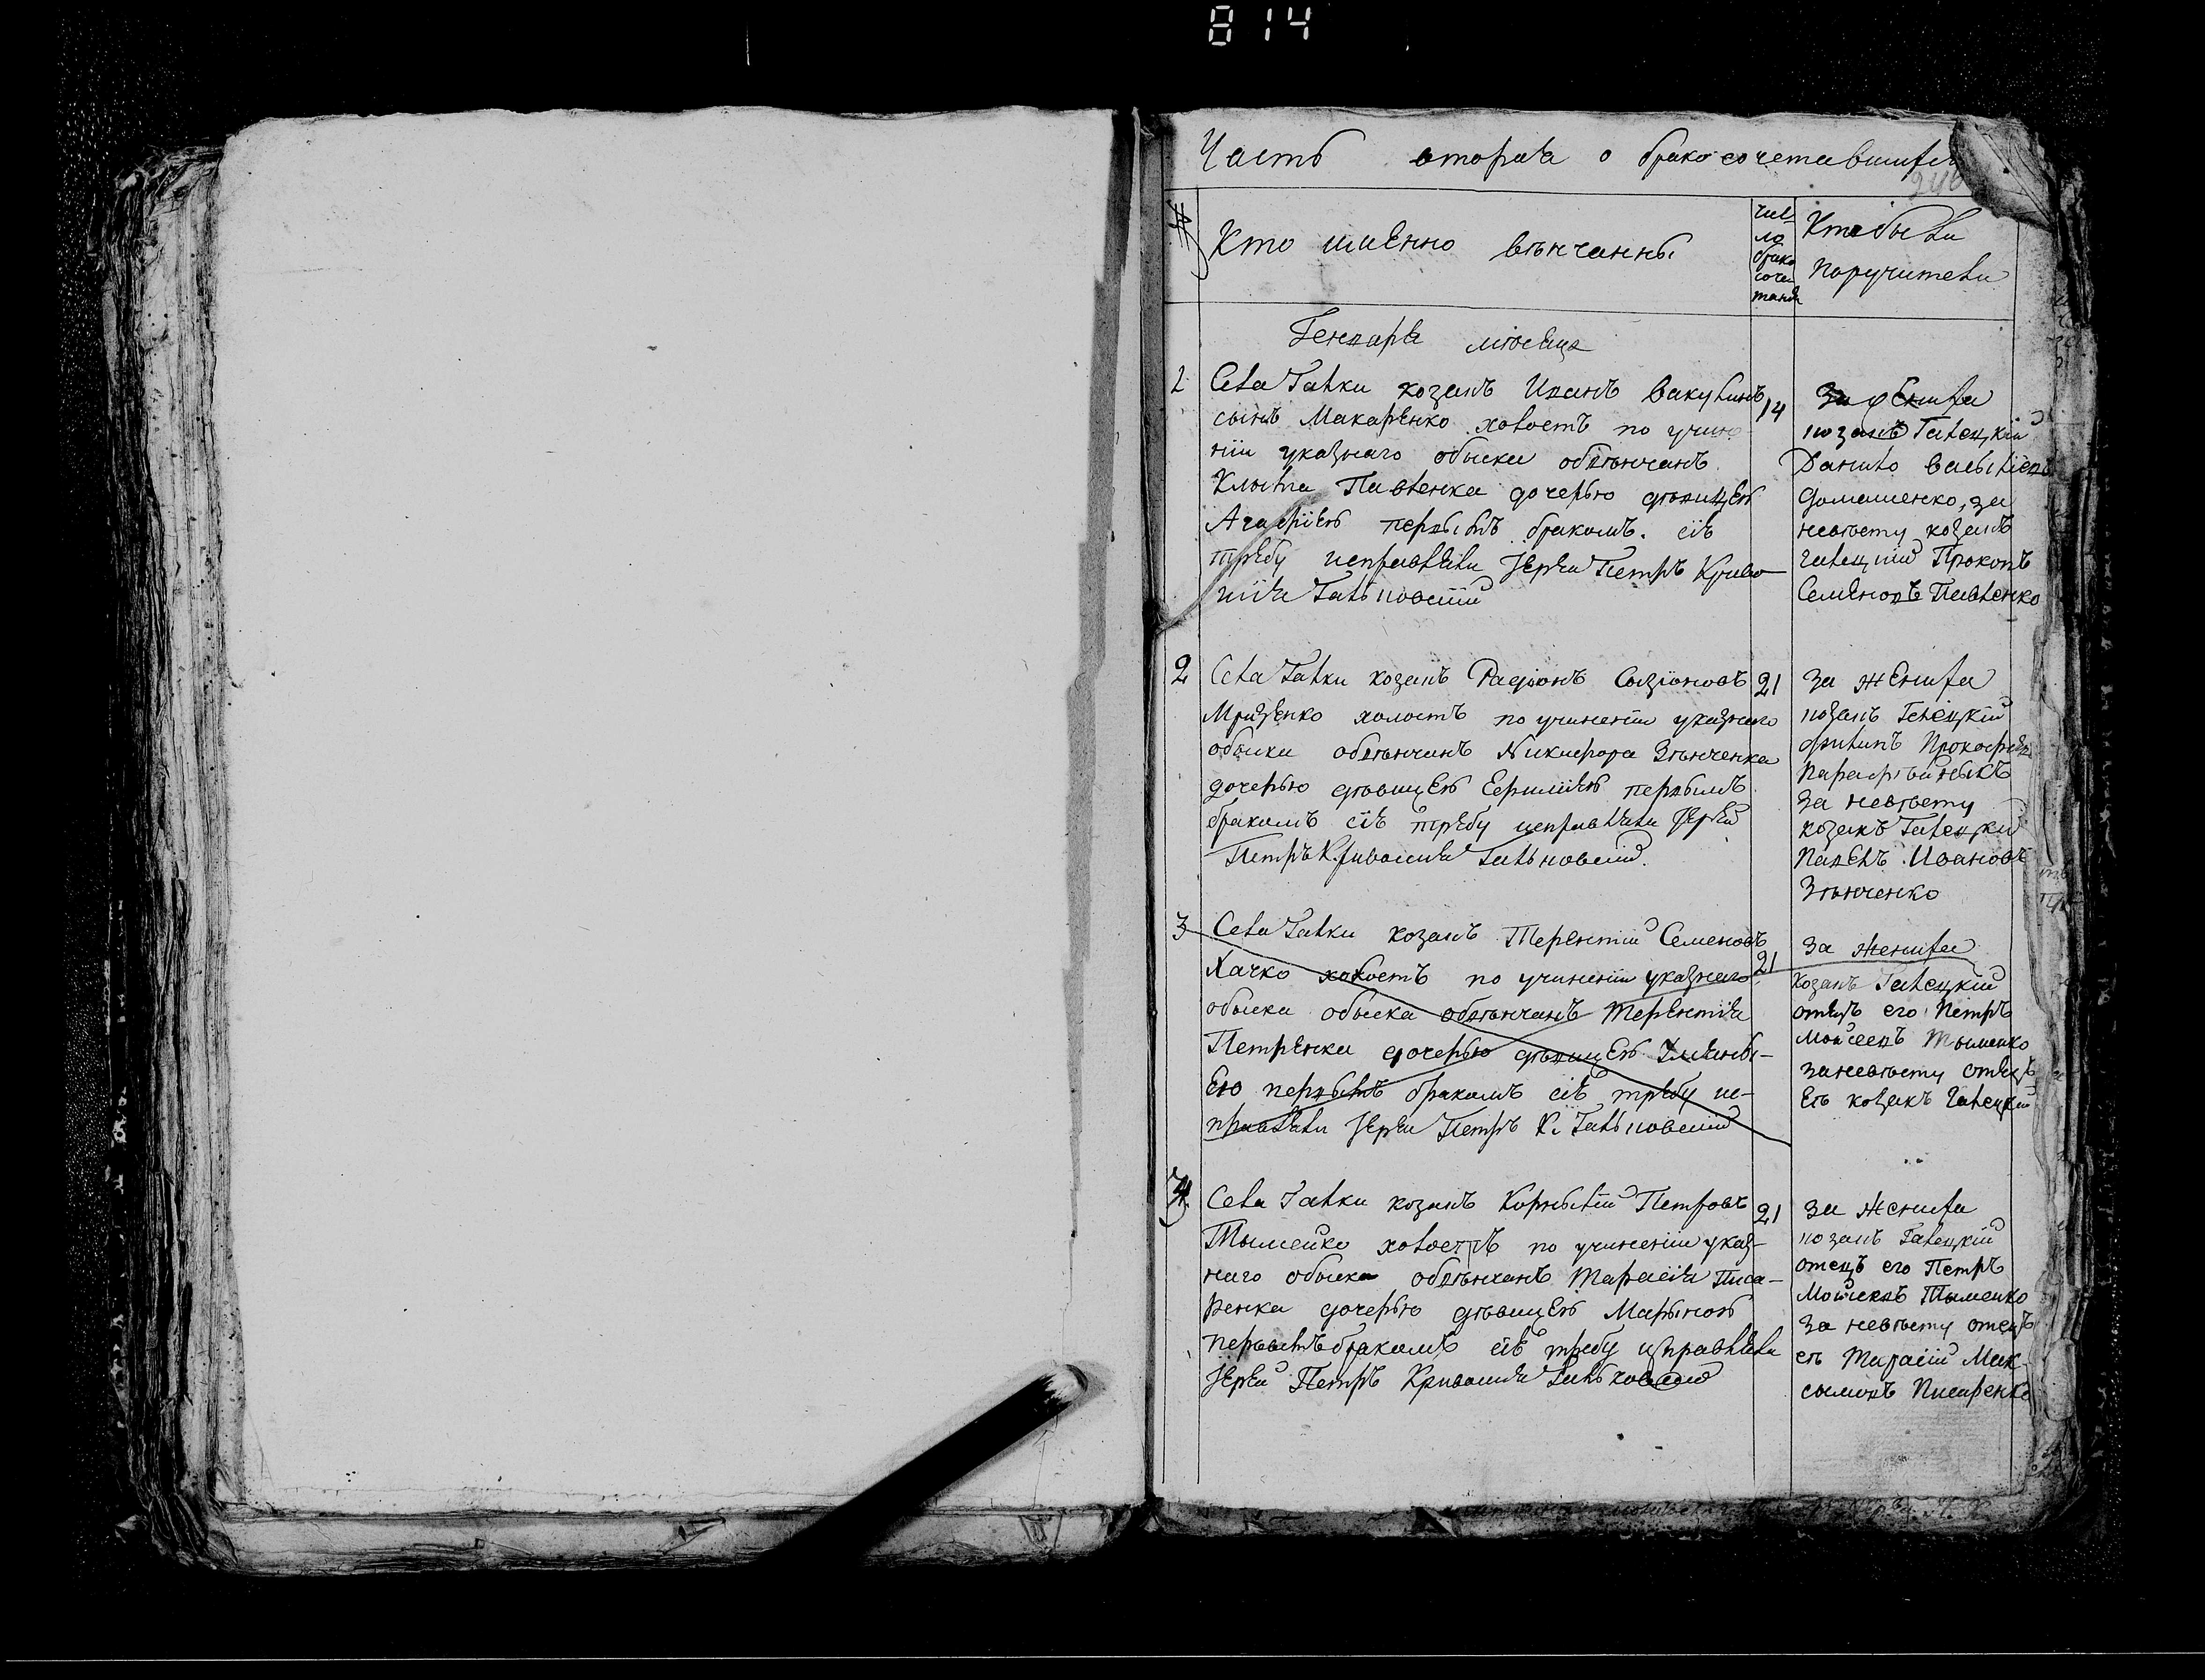 814
Часть вторая о бракосочетавшихся
№
Кто именно вѣнчанны
чис-
ло
брако
соче
танія
Кто были
поручители
Генваря мѣсяца
1
Села Галки козакъ Иванъ Вакулинъ
сынъ Макаренко холостъ по учине-
ніи указнаго обыска обвѣнчанъ
Павленка дочерью дѣвицею
Агафіею первымъ бракомъ. сію
требу исправляли Іерей Петръ Криво
шія Гальковскій
14
За жениха
козакъ Галецкій
Данило Васыліевъ
Домашенко, за
невѣсту козакъ
галецкій Прокопъ
Семеновъ Павленко
2
Села Галки козакъ Радіонъ Сызіоновъ
холостъ по учиненіи указнаго
обыска обвѣнчанъ Никифора Зѣнченка
дочерью дѣвицею первымъ
бракомъ сію требу исправляли Іерей
Петръ Кривошія Гальковскій.
21
За жениха
козакъ Галецкій
Филипъ Прокофіевъ
за невѣсту
козакъ Галецкій
Павелъ Ивановъ
Зѣнченко
3
Села Галки козакъ Терентій Семеновъ
Хачко холостъ по учиненіи указнаго
обыска обыска обвѣнчанъ Терентія
Петренка дочерью дѣвицею Улияны-
ею первымъ бракомъ сію требу ис-
правляли Іерей Петръ К. Гальковскій
21
За жениха
козакъ Галецкій
отецъ его Петръ
Мойсеевъ Тыменко
за невѣсту отецъ
ея козакъ Галецкій
4
Села Галки козакъ Корнылій Петровъ
Тыменко холостъ по учиненіи указ-
наго обыска обвѣнчанъ Тарасія Писа-
ренка дочерью дѣвицею Марыною
первымъ бракомъ сію требу исправляли
Іерей Петръ Кривошія Гальковскій
21
за жениха
козакъ Галецкій
отецъ его Петръ
Мойсеевъ Тыменко
За невѣсту отецъ
ея Тарасій Мак-
сымовъ Писаренко